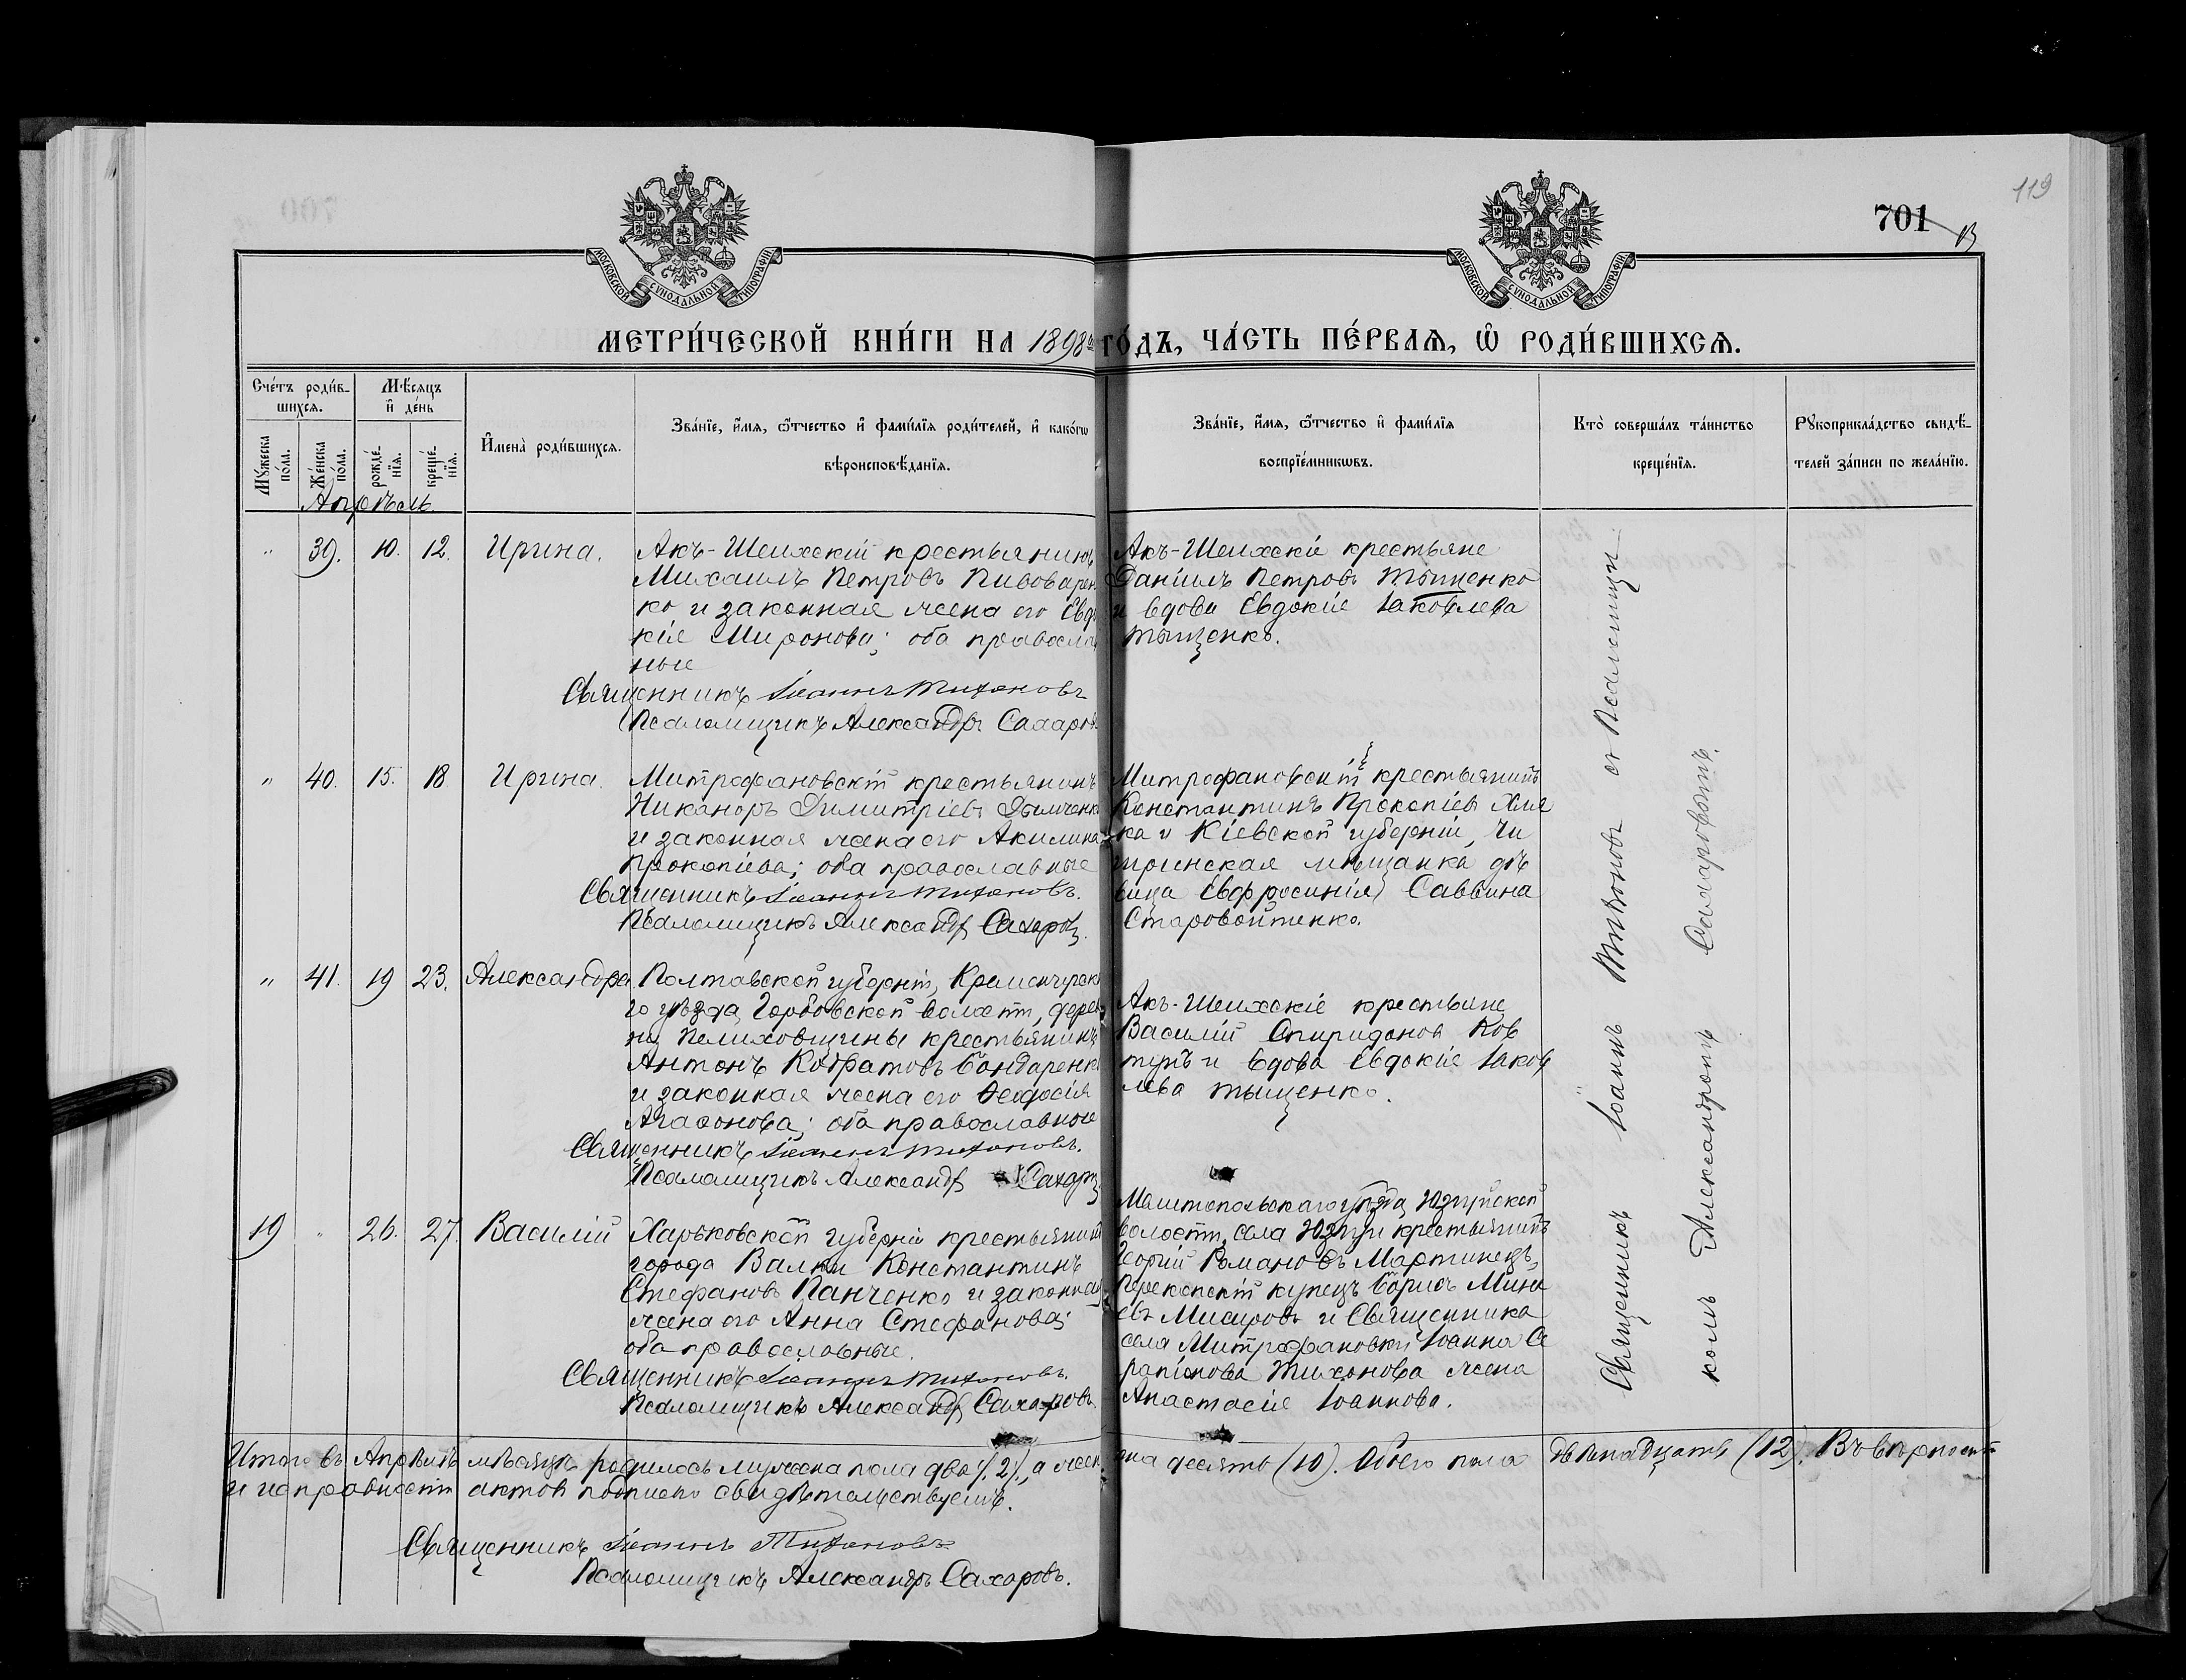 119
701
МОСКОВСКОЙ СУНОДАЛЬНОЙ ТИПОГРАФІИ
МОСКОВСКОЙ СУНОДАЛЬНОЙ ТИПОГРАФІИ
МЕТРИ́ЧЕСКОЙ КНИ́ГИ НА 1898й ГО́ДЪ, ЧА́СТЬ ПЕ́РВАѦ, Ѡ҆ РОДИ́ВШИХСѦ.
Сче́тъ роди́в-
шихсѧ.
Мужеска по́ла.
Же́нска по́ла.
Мѣ́сѧцъ
и҆ де́нь
рожде́-
нїѧ.
креще́-
нїѧ.
И҆мена̀ роди́вшихсѧ.
Зва́нїе, и҆́мѧ, ѻ҆́тчество и҆ фами́лїѧ роди́телей, и҆ како́гѡ
вѣроисповѣ́данїѧ.
Зва́нїе, и҆́мѧ, ѻ҆́тчество и҆ фами́лїѧ
воспрїе́мникѡвъ.
Кто̀ соверша́лъ та́инство
креще́нїѧ.
Рꙋкоприкла́дство свидѣ́-
телей за́писи по жела́нїю.
Апрѣль.
" 39. 10. 12. Ирина.
Акъ-Шеихскій крестьянинъ
Михаилъ Петровъ Пивоварен
ко и законная жена его Евдо
кія Миронова; оба православ
ные
Священникъ Іоаннъ Тихоновъ
Псаломщикъ Александръ Сахаровъ
Акъ-Шеихскіе крестьяне
Даніилъ Петровъ Тыщенко
и вдова Евдокія Іаковлева
Тыщенко.
" 40. 15. 18 Ирина.
Митрофановскій крестьянинъ
Никаноръ Димитріевъ
и законная жена его Акилина
Прокопіева; оба православные
Священникъ Іоаннъ Тихоновъ.
Псаломщикъ Александръ Сахаровъ.
Митрофановскій крестьянинъ
Константинъ Прокопіевъ
ка и Кіевской губерніи, Чи
гиринская мѣщанка дѣ
вица Евфросинія Саввина
Старовойтенко.
" 41. 19 23. Александра
Полтавской губерніи, Кременчугска
го уѣзда, волости, дерев
ни Пелиховщины крестьянинъ
Антонъ Кодратовъ Бондаренко
и законная жена его Ѳеодосія
Агафонова; оба православные
Священникъ Іоаннъ Тихоновъ.
Псаломщикъ Александръ Сахаровъ
Акъ-Шеихскіе крестьяне
Василій Спиридоновъ Ков
тунъ и вдова Евдокія Іаков
лева Тыщенко.
19 " 26. 27. Василій
Харьковской губерніи крестьянинъ
города Валки Константинъ
Стефановъ Панченко и законная
жена его Анна Стефанова;
оба православные.
Священникъ Іоаннъ Тихоновъ.
Псаломщикъ Александръ Сахаровъ.
уѣзда,
волости, села крестьянинъ
Георгій Романовъ Мартинецъ,
Перекопскій купецъ Борисъ Мина
евъ и Священника
села Митрофановки Іоанна Се
рапіонова Тихонова жена
Анастасія Іоаннова.
Священникъ Іоаннъ Тихоновъ съ Псаломщи-
комъ Александромъ Сахаровымъ.
Итого въ Апрѣлѣ мѣсяцѣ родилось мужска пола два (2), а жен ска десять (10). Обоего пола двѣнадцать (12). Въ вѣрности
и исправности актовъ подписью свидѣтельствуемъ.
Священникъ Іоаннъ Тихоновъ
Псаломщикъ Александръ Сахаровъ.